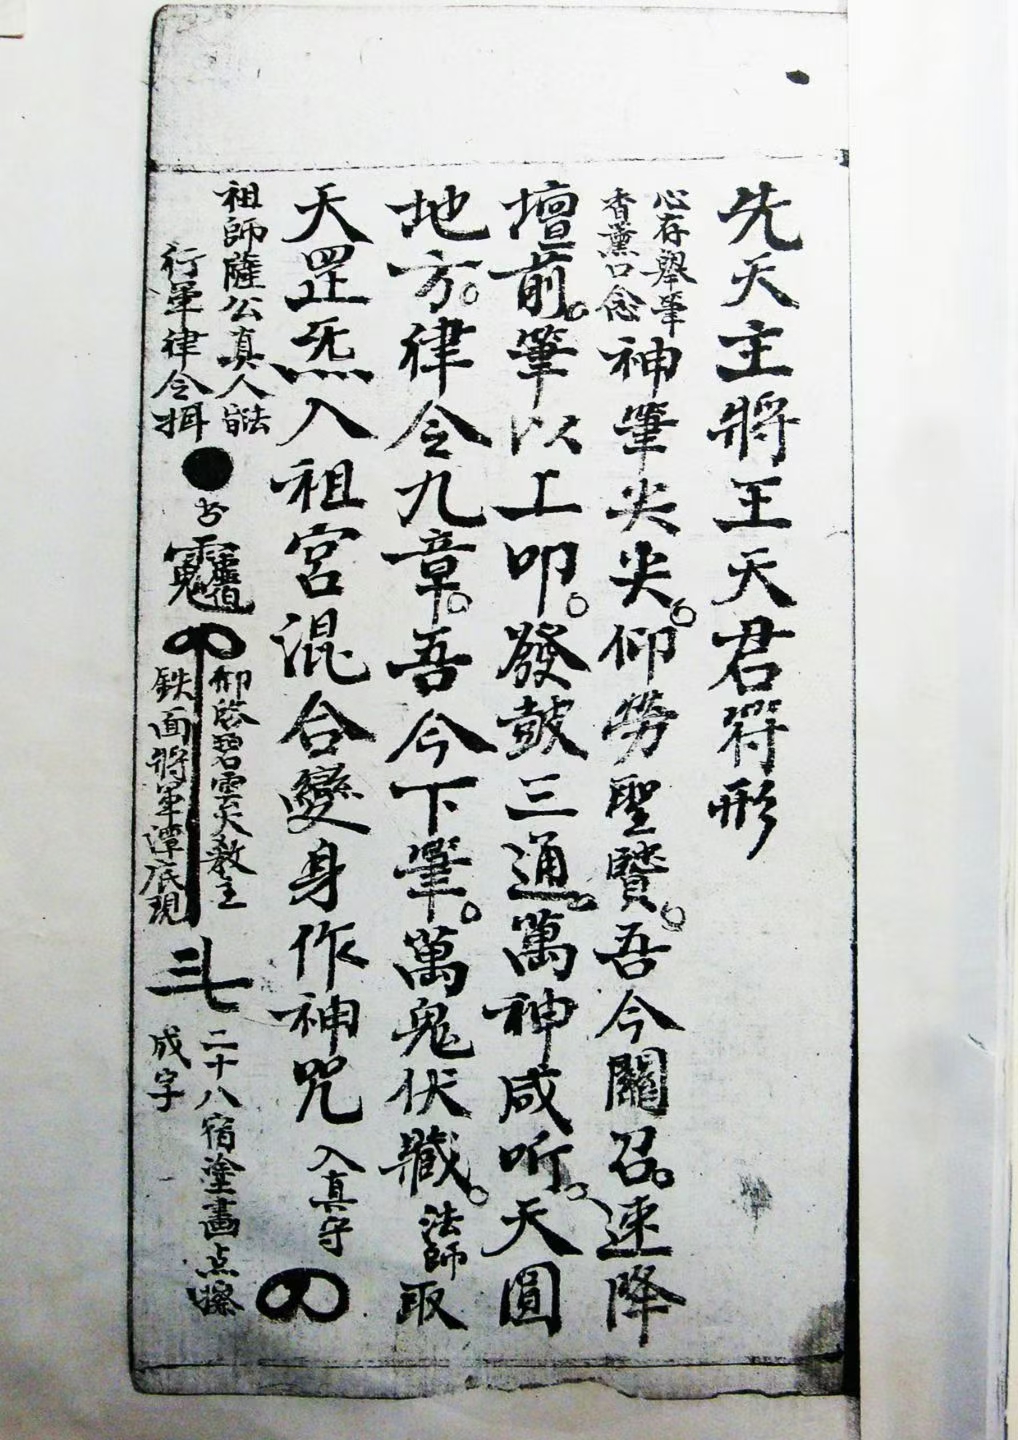 先天主將王天君符形
心存舉筆
香薰口念
神筆尖尖。仰勞聖賢。吾今關召。速降
壇前。筆以工叩。發鼓三通。萬神咸听。天圓
地方。律令九章。吾今下筆。萬鬼伏藏。法師取
天罡炁入祖宮混合變身作神咒 入真守
祖師薩公真人
行軍律令揖
仰啓碧雲天教主
鉄面將軍潭底現
二十八宿塗畫点
成字